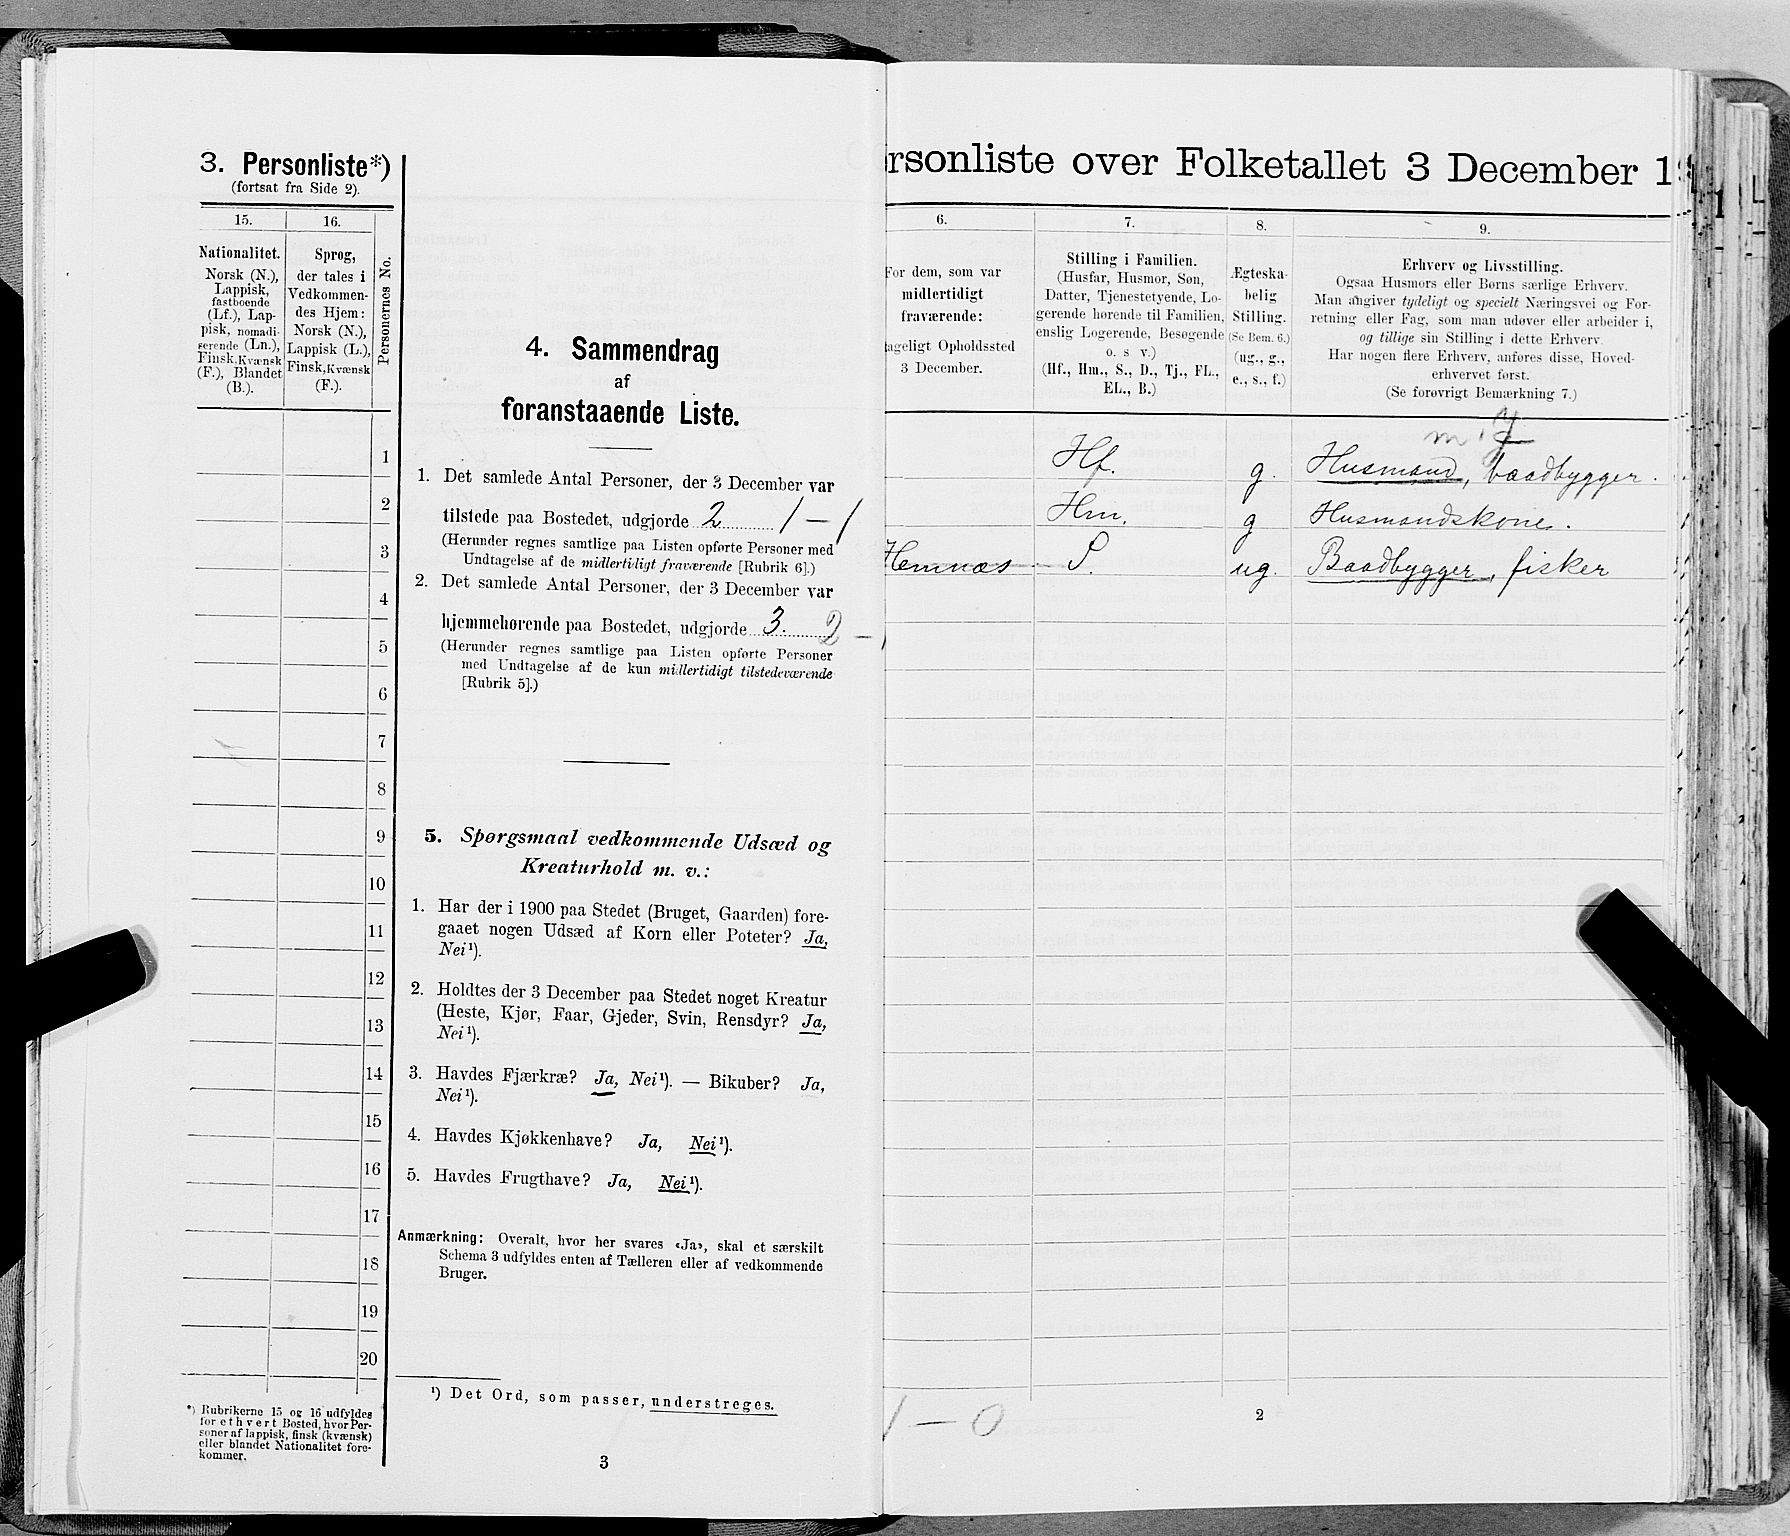 3. Personliste*)
(fortsat fra Side 2).
15.
16.
Personernes No.
Nationalitet.
Norsk (N.),
Lappisk,
fastboende
(Lf.), Lap-
pisk, nomadi-
serende (Ln.),
Finsk, Kvænsk
(F.), Blandet
(B.).
Sprog,
der tales i
Vedkommen-
des Hjem:
Norsk (N.),
Lappisk (L.),
Finsk, Kvænsk
(F.).
1
2
3
4
5
6
7
8
9
10
11
12
13
14
15
16
17
18
19
20
*) Rubrikerne 15 og 16 udfyldes
for ethvert Bosted, hvor Per-
soner af lappisk, finsk (kvænsk)
eller blandet Nationalitet fore-
kommer.
4. Sammendrag
af
foranstaaende Liste.
1. Det samlede Antal Personer, der 3 December var
tilstede paa Bostedet, udgjorde 2 1 – 1
(Herunder regnes samtlige paa Listen opførte Personer med
Undtagelse af de midlertidigt fraværende [Rubrik 6].)
2. Det samlede Antal Personer, der 3 December var
hjemmehørende paa Bostedet, udgjorde 3. 2 – 1
(Herunder regnes samtlige paa Listen opførte Personer
med Undtagelse af de kun midlertidigt tilstedeværende
[Rubrik 5].)
5. Spørgsmaal vedkommende Udsæd og
Kreaturhold m. v.:
1. Har der i 1900 paa Stedet (Bruget, Gaarden) fore-
gaaet nogen Udsæd af Korn eller Poteter? Ja,
Nei¹).
2. Holdtes der 3 December paa Stedet noget Kreatur
(Heste, Kjør, Faar, Gjeder, Svin, Rensdyr? Ja,
Nei¹).
3. Havdes Fjærkræ? Ja, Nei¹). — Bikuber? Ja,
Nei¹).
4. Havdes Kjøkkenhave? Ja, Nei¹).
5. Havdes Frugthave? Ja, Nei¹).
Anmærkning: Overalt, hvor her svares «Ja», skal et særskilt
Schema 3 udfyldes enten af Tælleren eller af vedkommende
Bruger.
¹) Det Ord, som passer, understreges.
3
rsonliste over Folketallet 3 December 1
6.
7.
8.
9.
For dem, som var
midlertidigt
fraværende:
ageligt Opholdssted
3 December.
Stilling i Familien.
(Husfar, Husmor, Søn,
Datter, Tjenestetyende, Lo-
gerende hørende til Familien,
enslig Logerende, Besøgende
o. s v.)
(Hf., Hm., S., D., Tj., FL.,
EL., B.)
Ægteska-
belig
Stilling.
(Se Bem. 6.)
(ug., g.,
e., s., f.)
Erhverv og Livsstilling.
Ogsaa Husmors eller Børns særlige Erhverv.
Man angiver tydeligt og specielt Næringsvei og For-
retning eller Fag, som man udøver eller arbeider i,
og tillige sin Stilling i dette Erhverv.
Har nogen flere Erhverv, anføres disse, Hoved-
erhvervet først.
(Se forøvrigt Bemærkning 7.)
Hf. g. Husmand, baadbygger.
Hm. g Husmandskone.
Hemnæs S. ug. Baadbygger, fisker
1 – 0
2